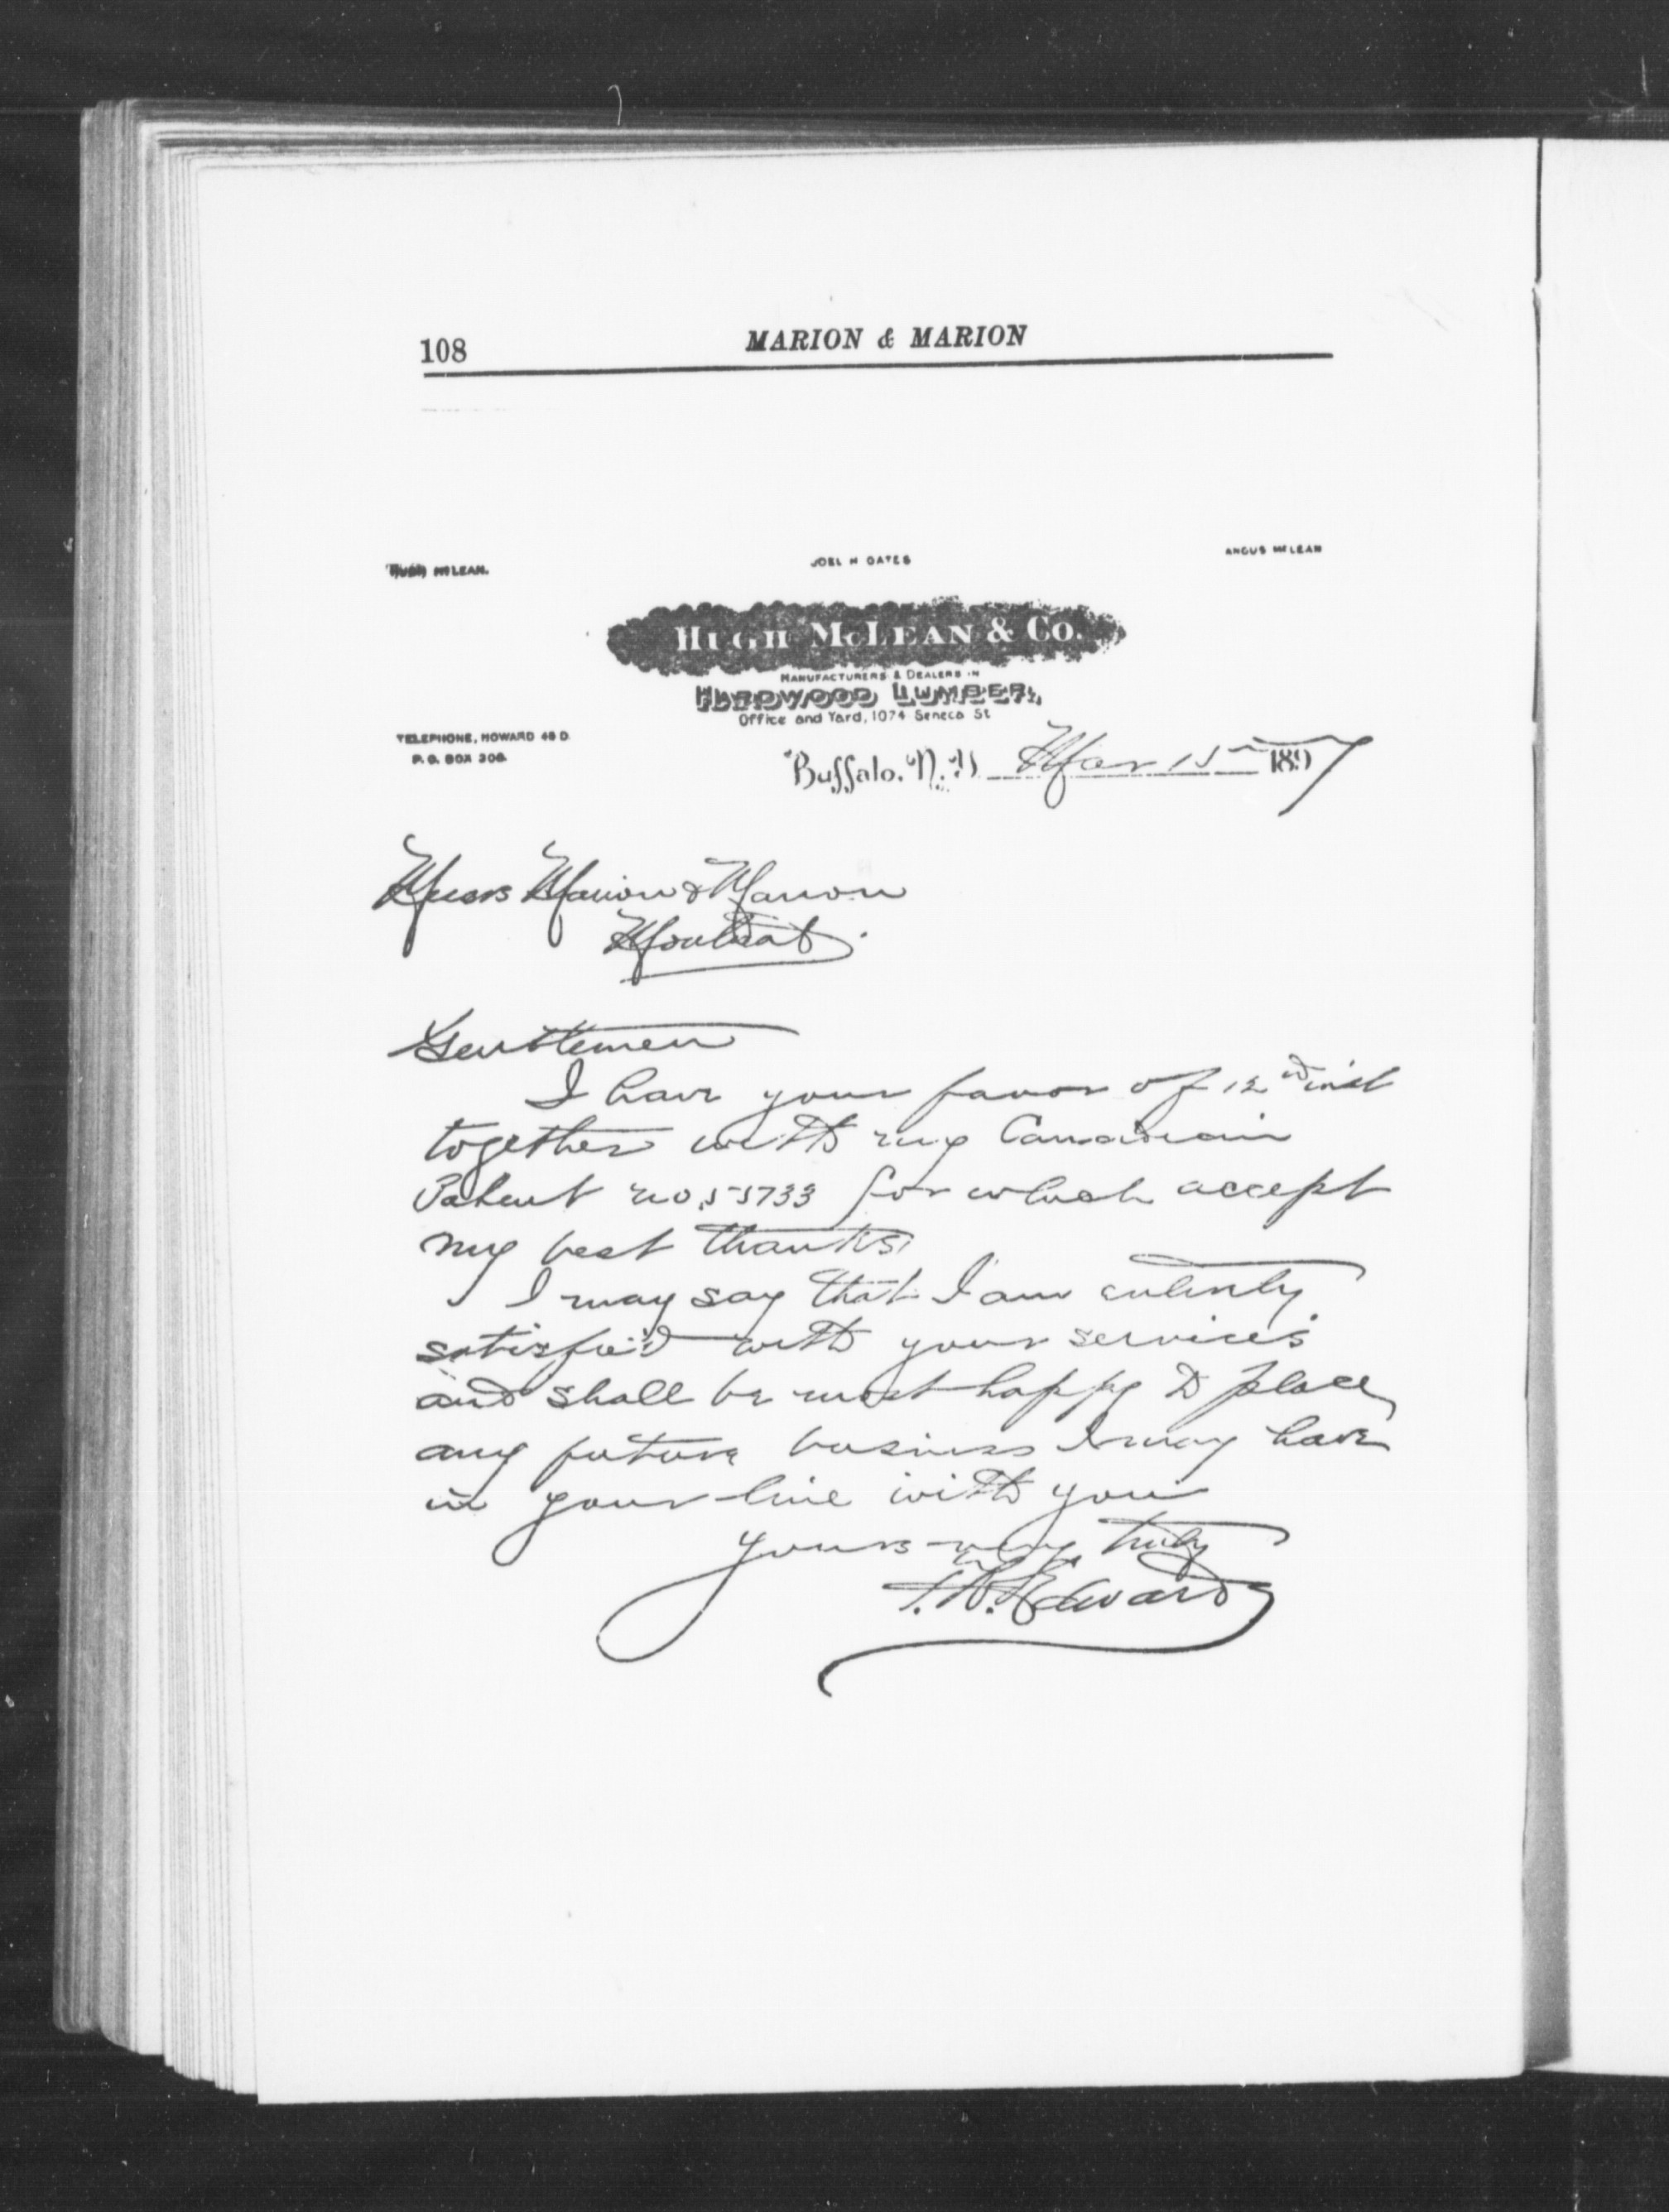 108
MARION & MARION
HUGH McLEAN.
JOEL H GATES
ANGUS McLEAN
HUGH McLEAN & Co.
MANUFACTURERS & DEALERS IN
HARDWOOD LUMBER,
Office and Yard, 1074 Seneca St
TELEPHONE, HOWARD 49 D
P. O. BOX 206
Buffalo, N.Y. Mar 15 1897
Messrs Marion & Marion
Montreal.
Gentlemen
I have your favor of 12 inst
together with my Canadian
Patent no. 55733 for which accept
my best thanks
I may say that I am entirely
satisfied with your services
and shall be most happy to place
any future business I may have
in your line with you
yours very truly
Edwards